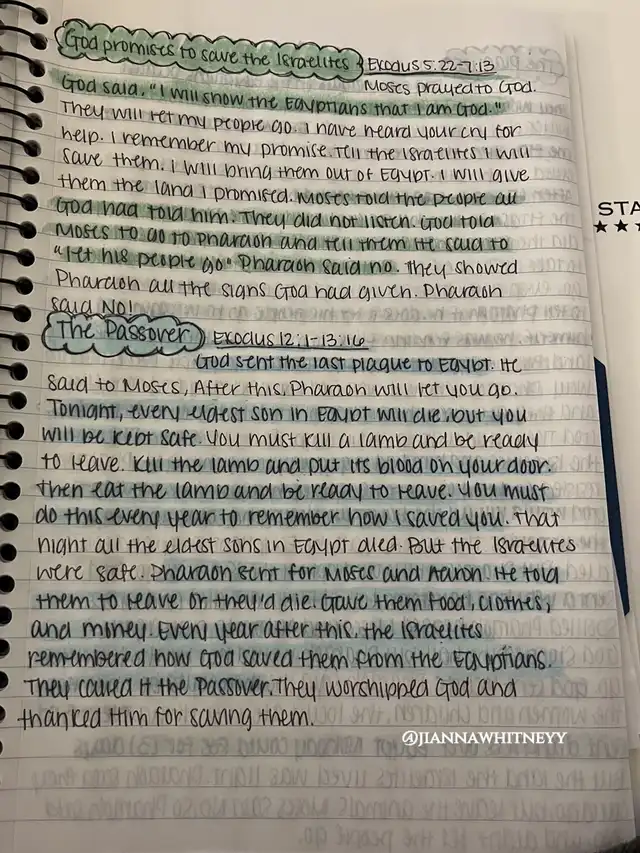 God promises to save the Israelites Exodus 5:22-7:13
Moses prayed to God.
God said, "I will show the Egyptians that I am God."
They will let my people go. I have heard your cry for
help. I remember my promise. Tell the Israelites I will
save them. I will bring them out of Egypt. I will give
them the land I promised. Moses told the people all
God had told him. They did not listen. God told
Moses to go to Pharaoh and tell them He said to
"let his people go" Pharaoh said no. They showed
Pharaoh all the signs God had given. Pharaoh
said NO!
The Passover Exodus 12:1-13:16
God sent the last plague to Egypt. He
said to Moses, After this, Pharaoh will let you go.
Tonight, every eldest son in Egypt will die, but you
will be kept safe. You must kill a lamb and be ready
to leave. Kill the lamb and put its blood on your door.
Then eat the lamb and be ready to leave. You must
do this every year to remember how I saved you. That
night all the eldest sons in Egypt died. But the Israelites
were safe. Pharaoh sent for Moses and Aaron. He told
them to leave or they'd die. Gave them food, clothes,
and money. Every year after this, the Israelites
remembered how God saved them from the Egyptians.
They called it the Passover. They worshipped God and
thanked Him for saving them.
@JIANNAWHITNEYY
STA